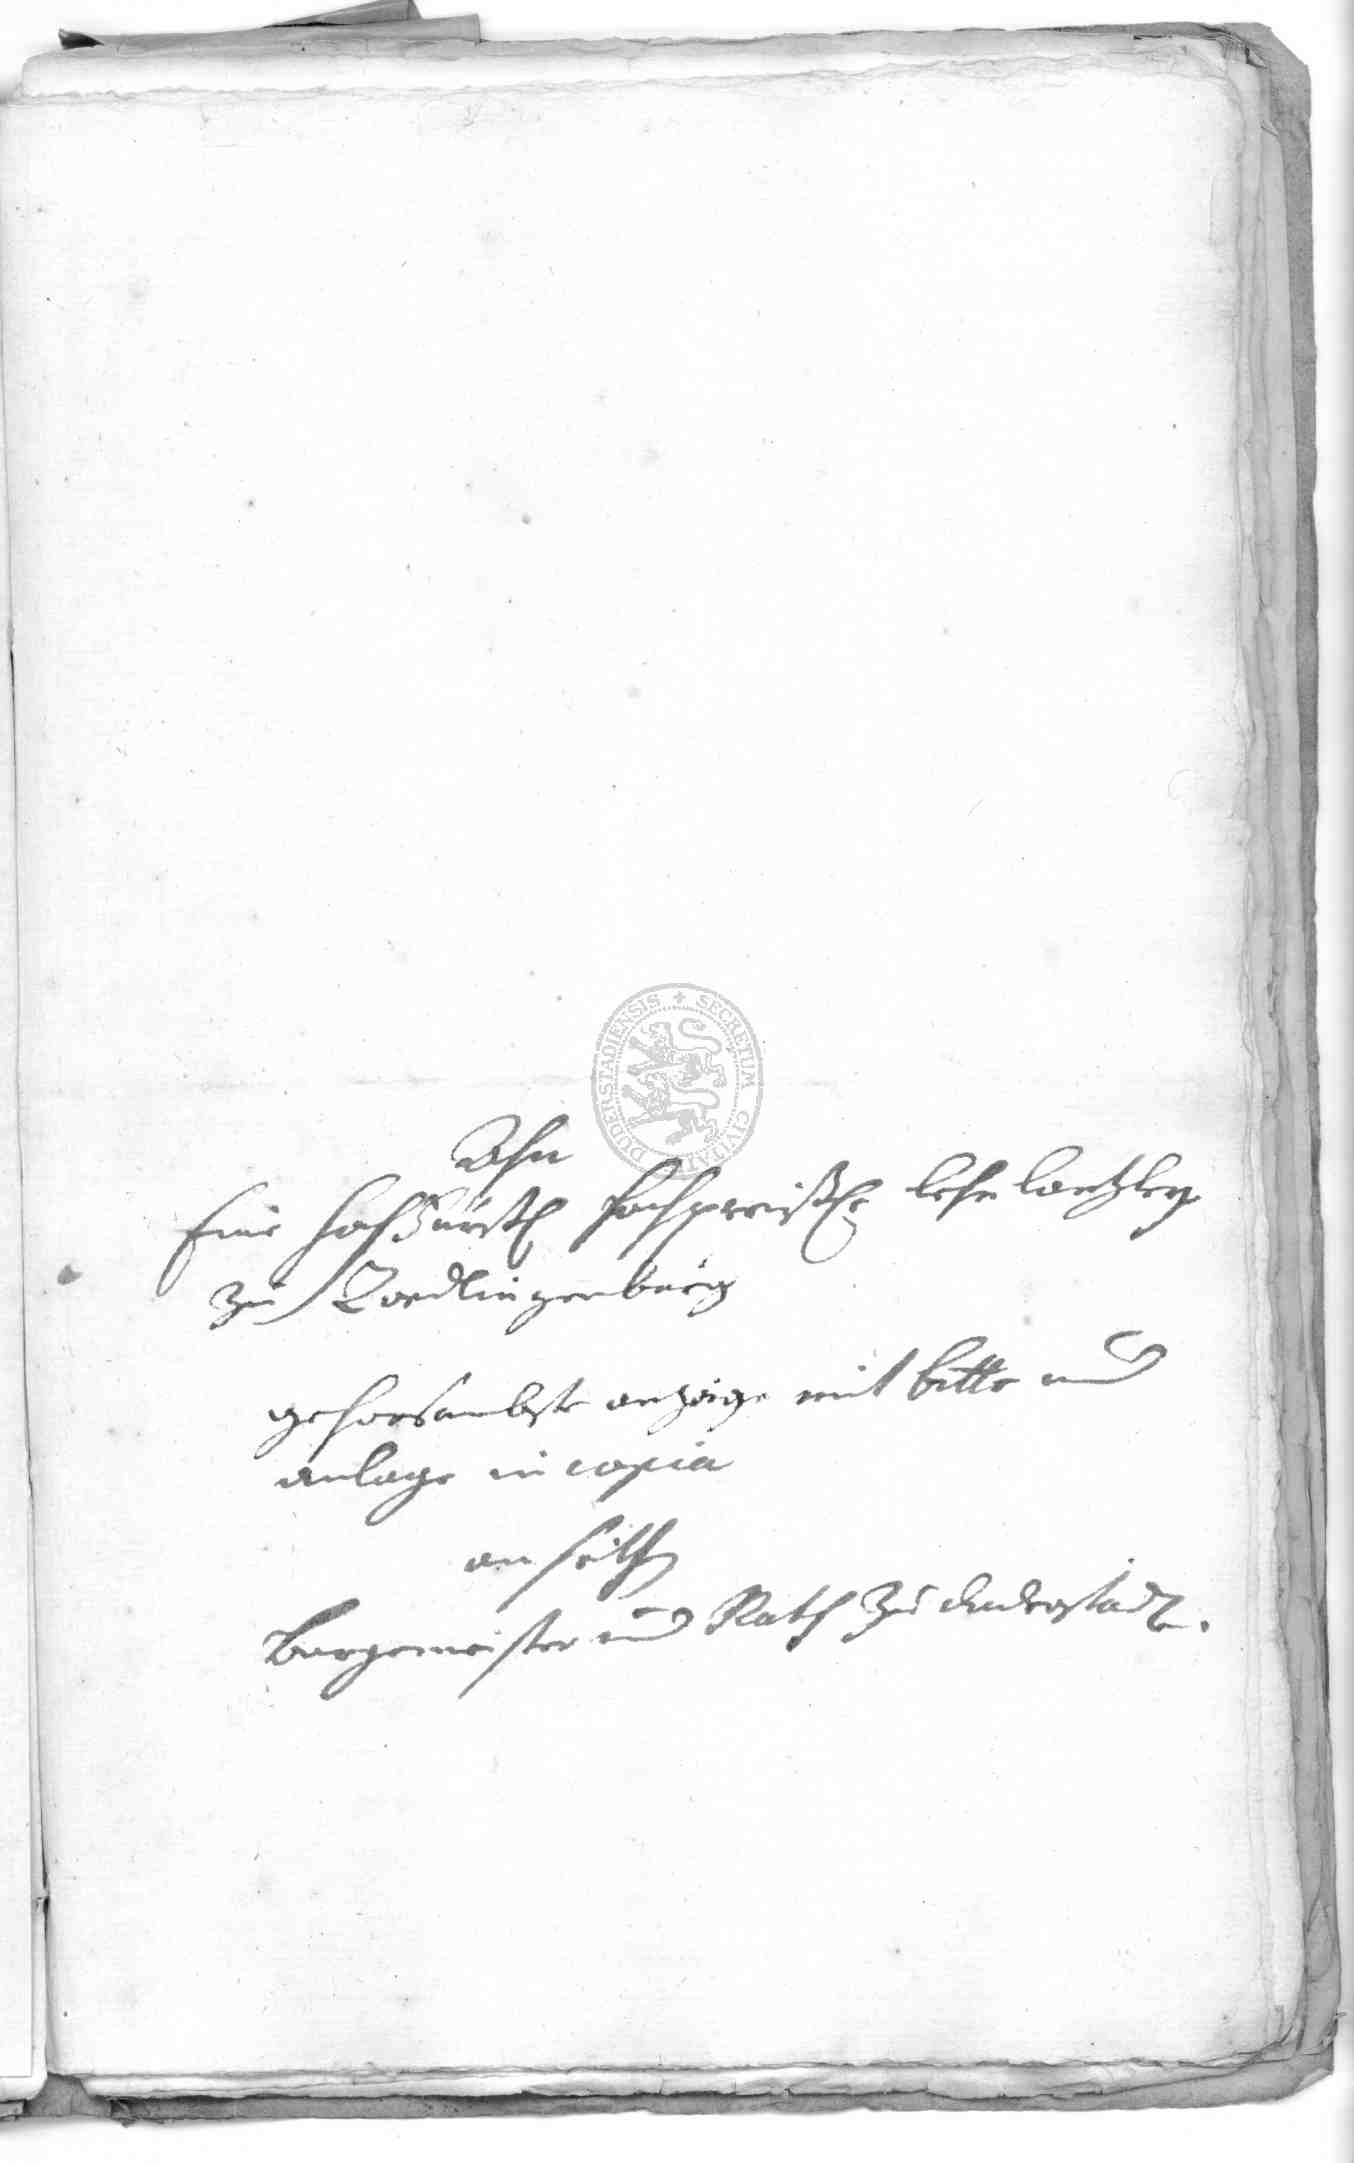 SECRETUM CIVITATIS DUDERSTADIENSIS
Ahn
Eine hochfürstl hochpreißl lehn Cantzley
zu Quedlingenburg
gehorsambste anzeige mit bitte und
anlage in copia
an seith
Burgemeister und Rath zu duderstadt.